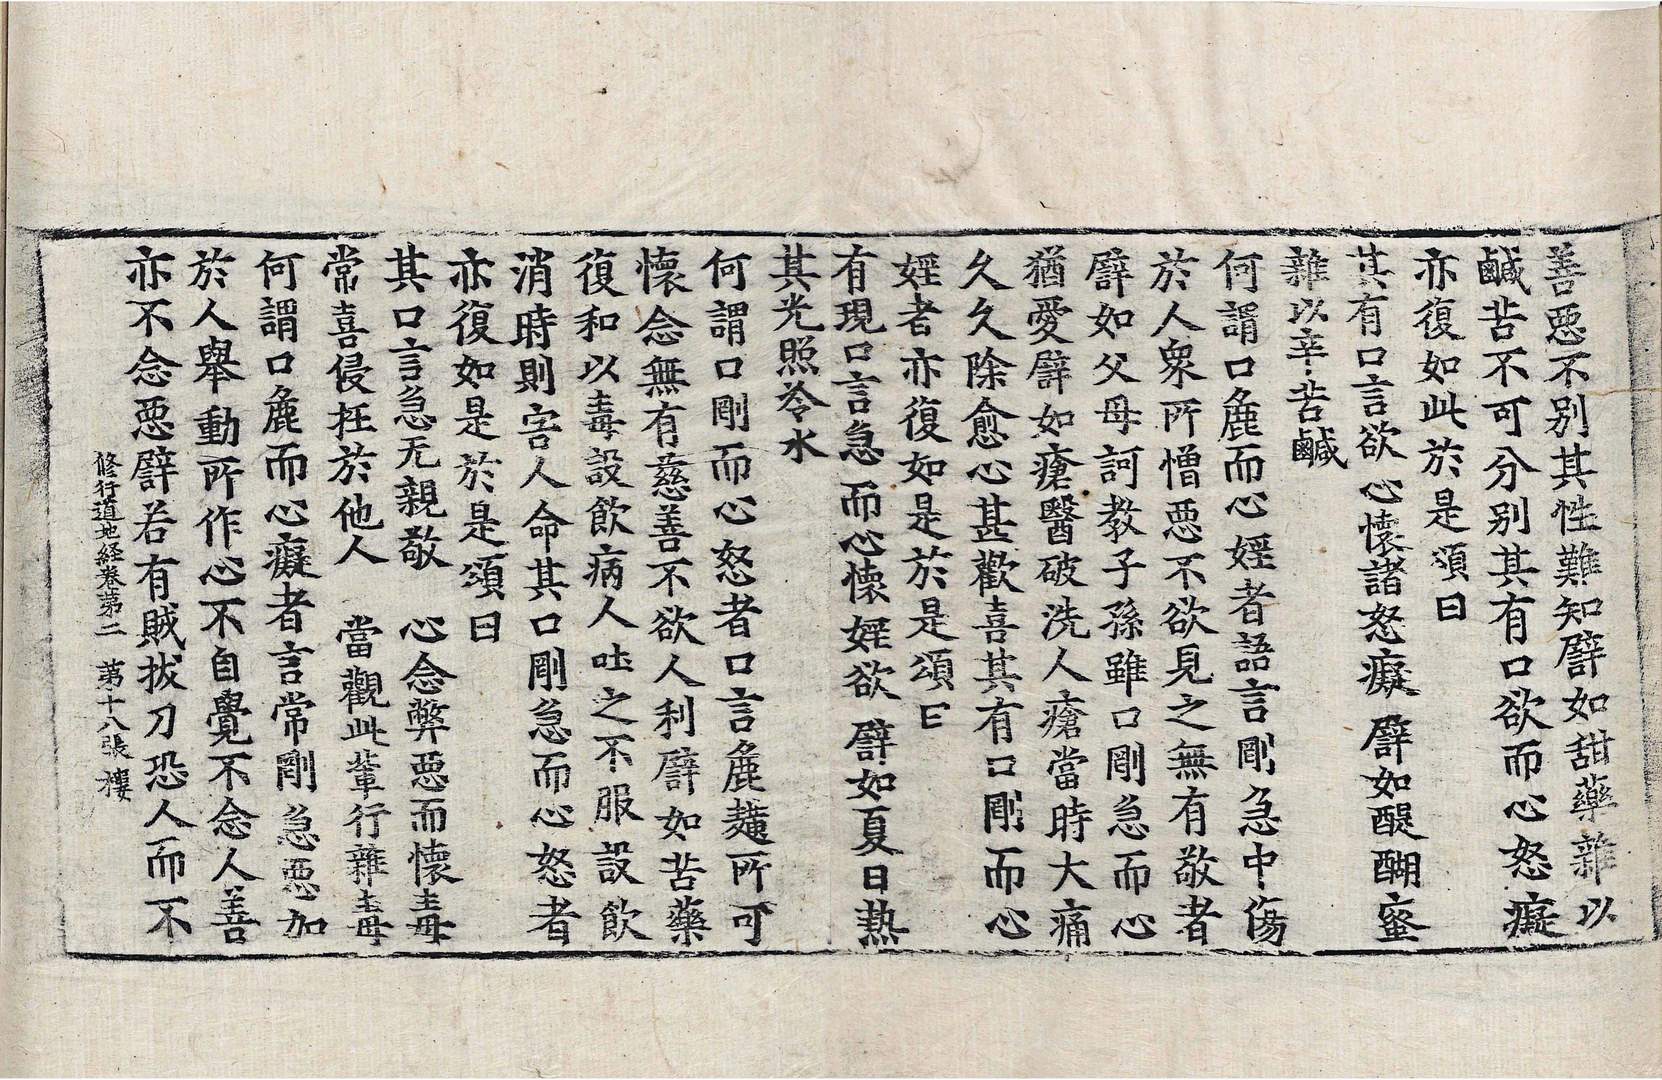 善惡不別其性難知譬如甜藥雜以
鹹苦不可分別其有口欲而心怒癡
亦復如此於是頌曰
其有口言欲 心懷諸怒癡 譬如醍醐蜜
雜以辛苦鹹
何謂口麁而心婬者語言剛急中傷
於人衆所憎惡不欲見之無有敬者
譬如父母訶教子孫雖口剛急而心
猶愛譬如瘡醫破洗人瘡當時大痛
久久除愈心甚歡喜其有口剛而心
婬者亦復如是於是頌曰
有現口言急 而心懷婬欲 譬如夏日熱
其光照冷水
何謂口剛而心怒者口言麁麤所可
懷念無有慈善不欲人利譬如苦藥
復和以毒設飲病人吐之不服設飲
消時則害人命其口剛急而心怒者
亦復如是於是頌曰
其口言急无親敬 心念弊惡而懷毒
常喜侵抂於他人 當觀此輩行雜毒
何謂口麁而心癡者言常剛急惡加
於人舉動所作心不自覺不念人善
亦不念惡譬若有賊拔刀恐人而不
修行道地経卷苐二 苐十八張 樓